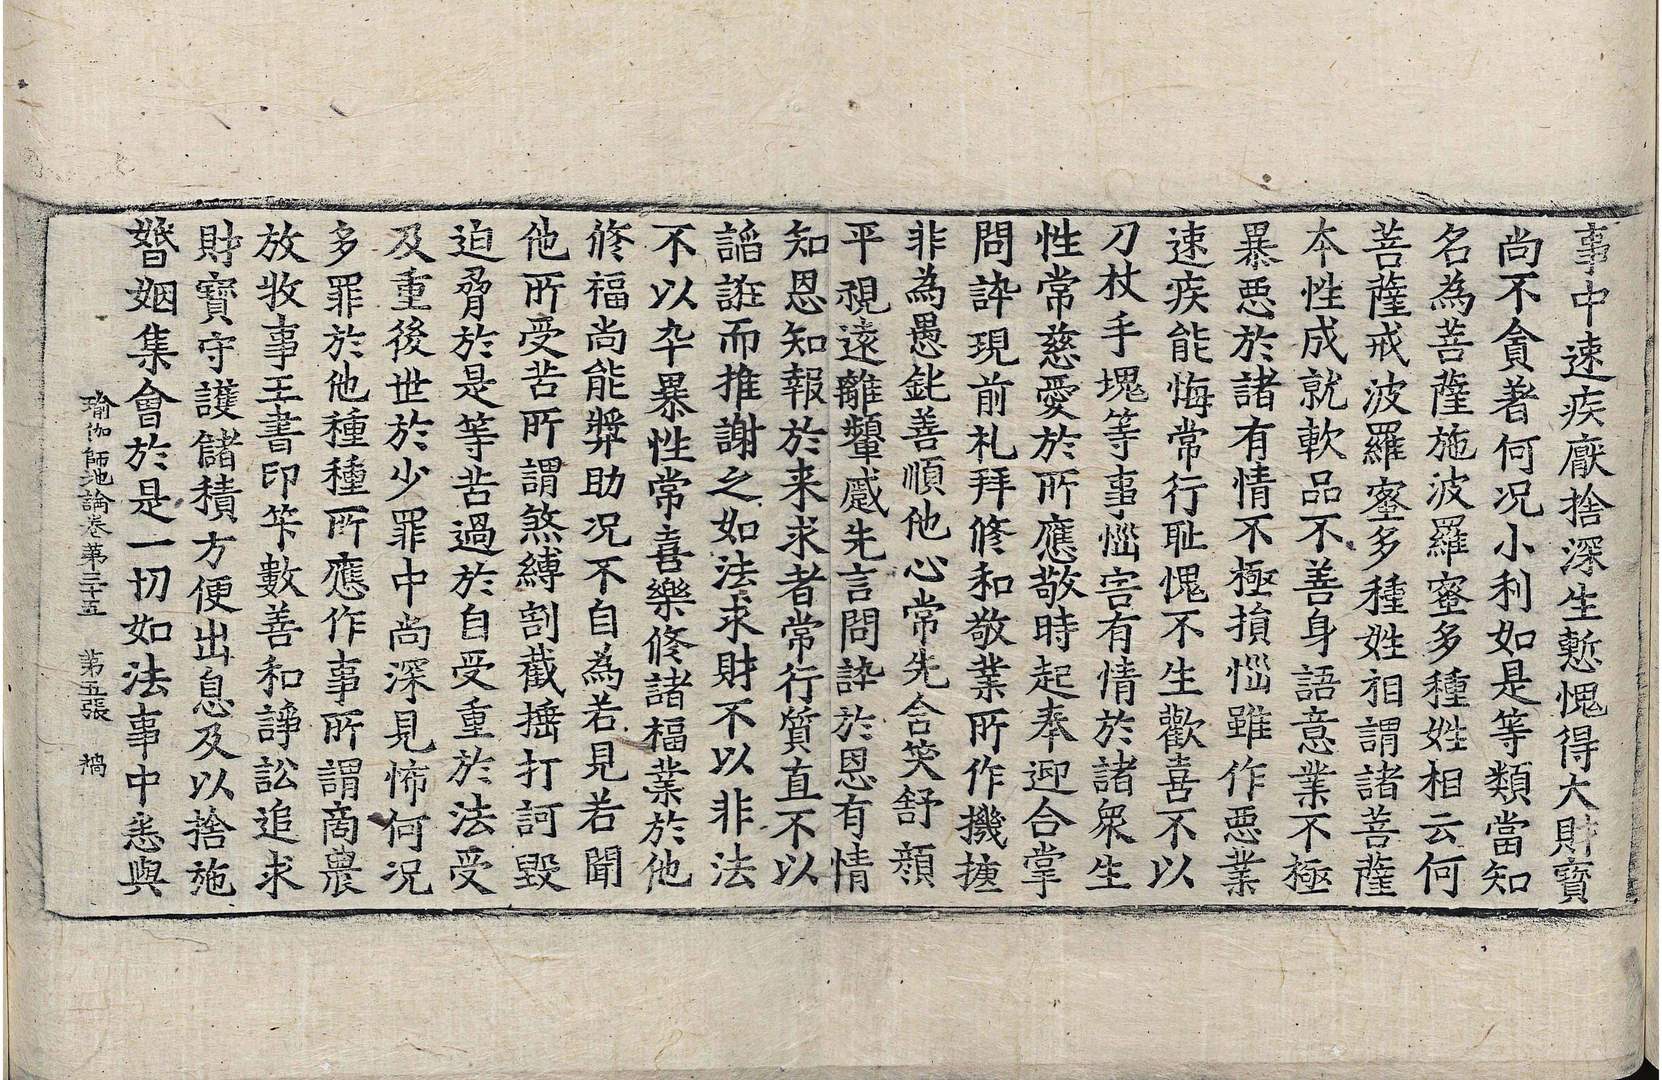 事中速疾厭捨深生慙愧得大財寶
尚不貪著何況小利如是等類當知
名為菩薩施波羅蜜多種姓相云何
菩薩戒波羅蜜多種姓相謂諸菩薩
本性成就軟品不善身語意業不極
暴惡於諸有情不極損惱雖作惡業
速疾能悔常行恥愧不生歡喜不以
刀杖手塊等事惱害有情於諸衆生
性常慈愛於所應敬時起奉迎合掌
問訊現前礼拜修和敬業所作機捷
非為愚鈍善順他心常先含笑舒顏
平視遠離顰蹙先言問訊於恩有情
知恩知報於来求者常行質直不以
諂誑而推謝之如法求財不以非法
不以卒暴性常喜樂修諸福業於他
修福尚能獎助況不自為若見若聞
他所受苦所謂煞縛割截捶打訶毀
迫脅於是等苦過於自受重於法受
及重後世於少罪中尚深見怖何況
多罪於他種種所應作事所謂商農
放牧事王書印筭數善和諍訟追求
財寶守護儲積方便出息及以捨施
婚姻集會於是一切如法事中悉與
瑜伽師地論卷第三十五 第五張 禍